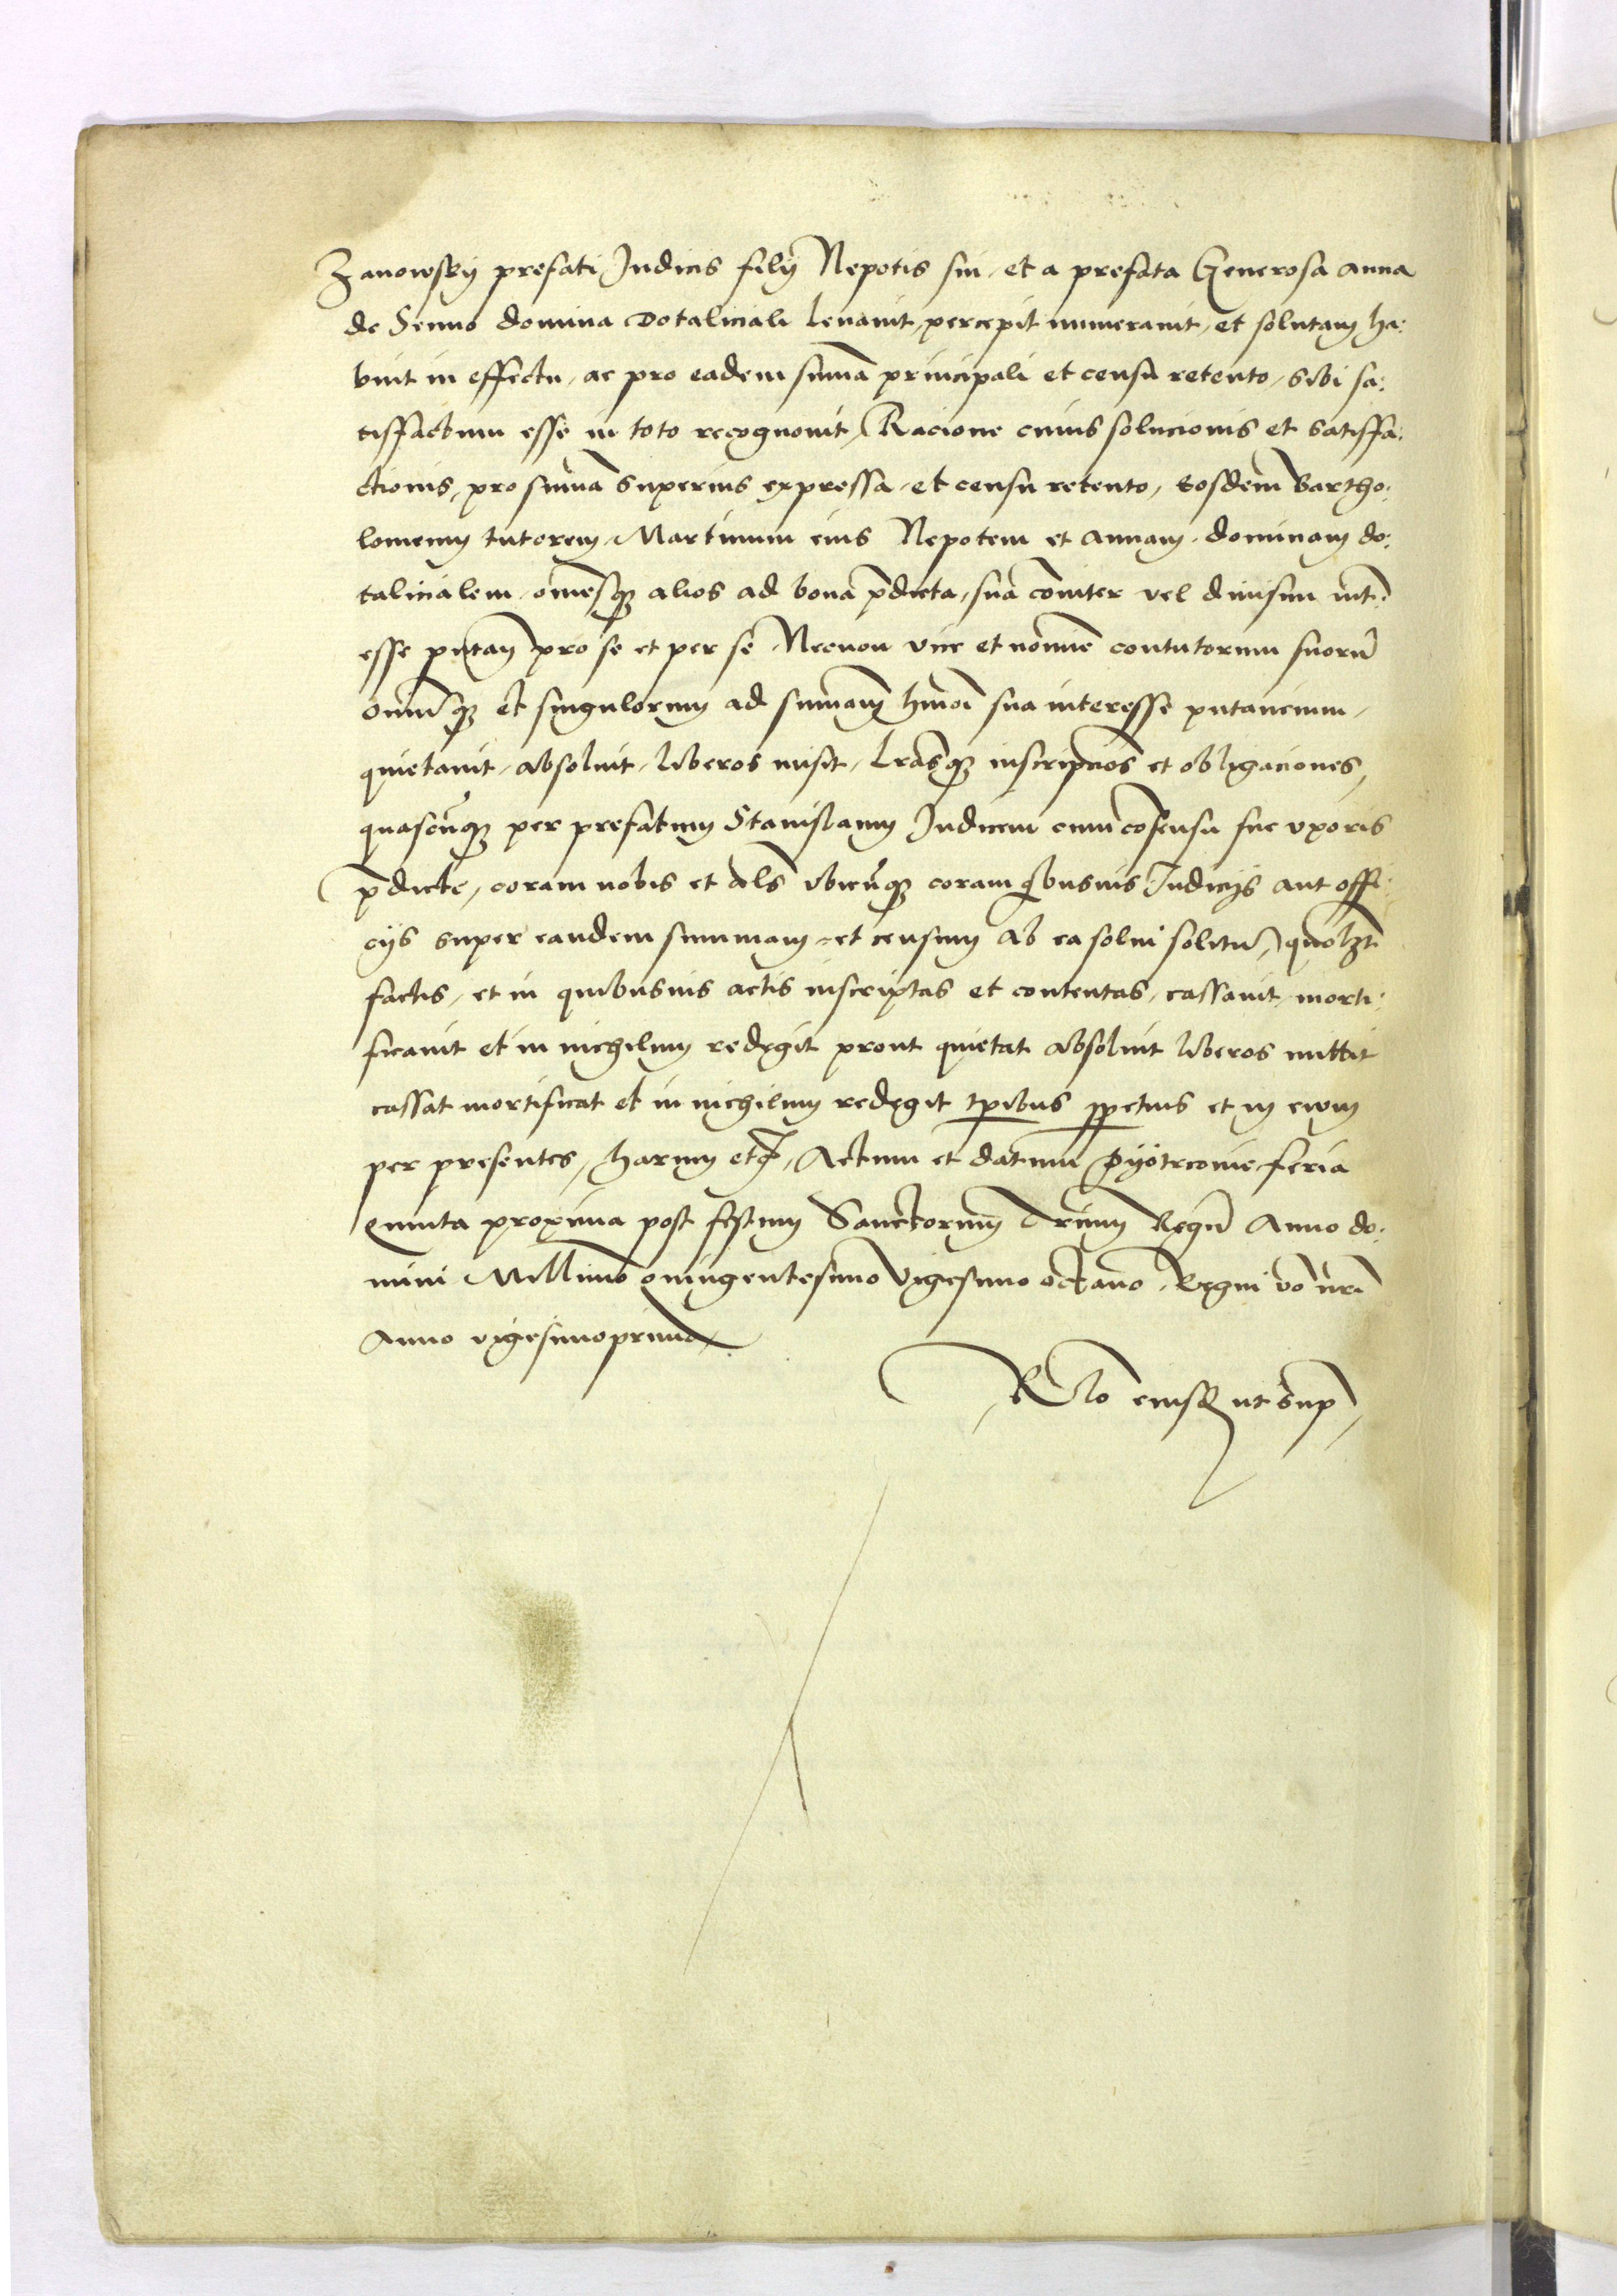 Zanowskÿ prefati Judicis filÿ Nepotis sui, et a prefata Generosa Anna
de Senno domina Dotaliciali levavit, percepit numeravit, et solutam ha:
buit in effectu, ac pro eadem sum̄a principali et censu retento, sibi sa:
tisfactum esse in toto recognovit, Racione cuius solucionis et satisffa:
ctionis, pro sum̄a superius expressa, et censu retento, eosdem Bartho:
lomeum tutorem, Martinum eius Nepotem et Annam, dominam do:
talicialem, om̄esq3 alios ad bona p̄dicta, sua com̄iter vel divisim int̄:
esse putan̄ pro se et per se, Necnon vice et nomīe contutorum suorū
om̄iūq3 et singulorum ad sum̄am hm̄oi sua interesse putancium,
quietavit, absolvit, liberos misit, Lr̄asq3 inscripcōes et obligaciones,
quascūq3 per prefatum Stanislaum Judicem cum cōsensu sue uxoris
p̄dicte, coram nobis et als̄ ubicūq3 coram qbusvis Judicÿs aut offi:
cÿs super eandem summam, et censum ab ea solvi solitū, quolz̄t
factis, et in quibusvis actis inscriptas et contentas, cassavit, morti:
ficavit et in nichilum redegit prout quietat absolvit liberos mittit
cassat mortificat et in nichilum redegit tp̄ibus ppetuis et in evum
per presentes, harum etc̄, Actum et datum Pÿotrcovie feria
quinta proxima post festum Sanctorum Trium Regū Anno do:
mini Millimo quingentesimo vigesimo octavo, Regni vō nr̄i
Anno vigesimoprimo,
Rlō eiusd ut sup̄